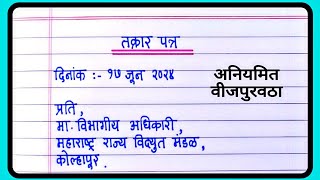 तक्रार पत्र
दिनांक :- १७ जून २०२४
अनियमित
वीजपुरवठा
प्रति,
मा. विभागीय अधिकारी,
महाराष्ट्र राज्य विद्युत मंडळ,
कोल्हापूर.